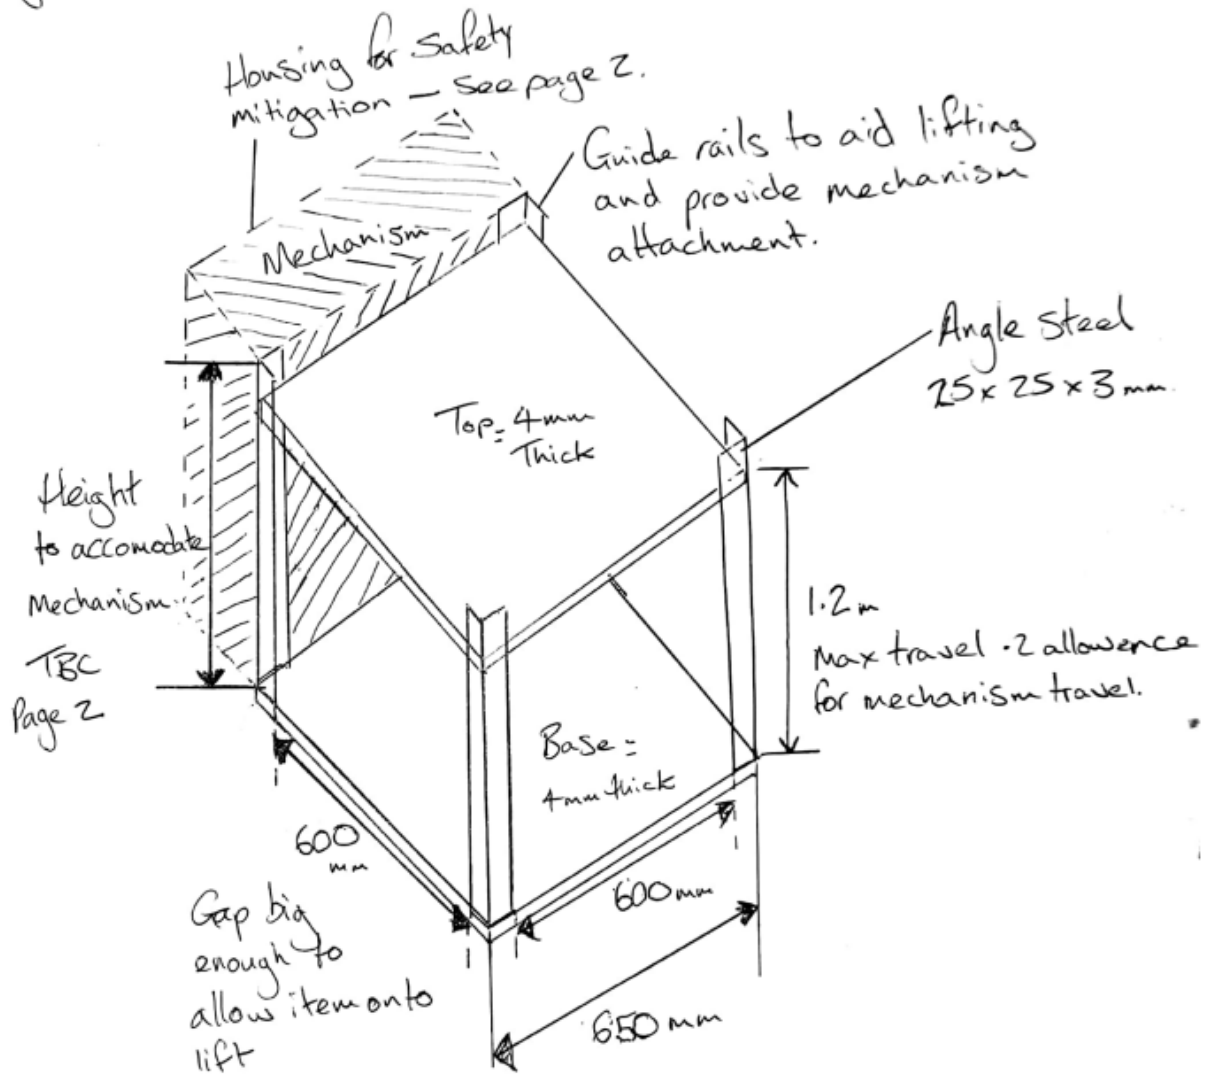 Housing for Safety
mitigation — See page 2.
Guide rails to aid lifting
and provide mechanism
attachment.
Mechanism
Angle Steel
25 x 25 x 3 mm.
Top = 4mm
Thick
Height
to accomodate
Mechanism.
TBC
Page 2
1.2m
Max travel .2 allowence
for mechanism travel.
Base =
4mm thick
600
mm
600mm
Gap big
enough to
allow item onto
lift
650 mm